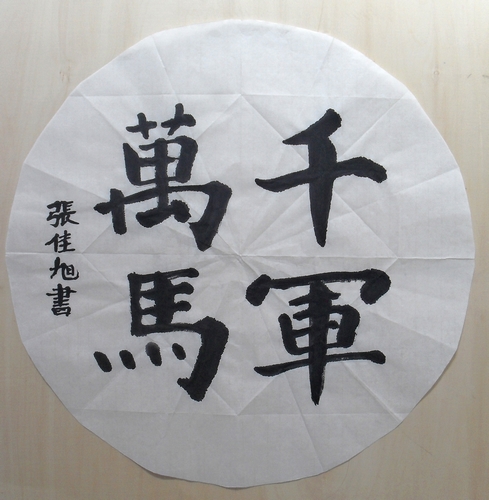 千軍
萬馬
張佳旭書